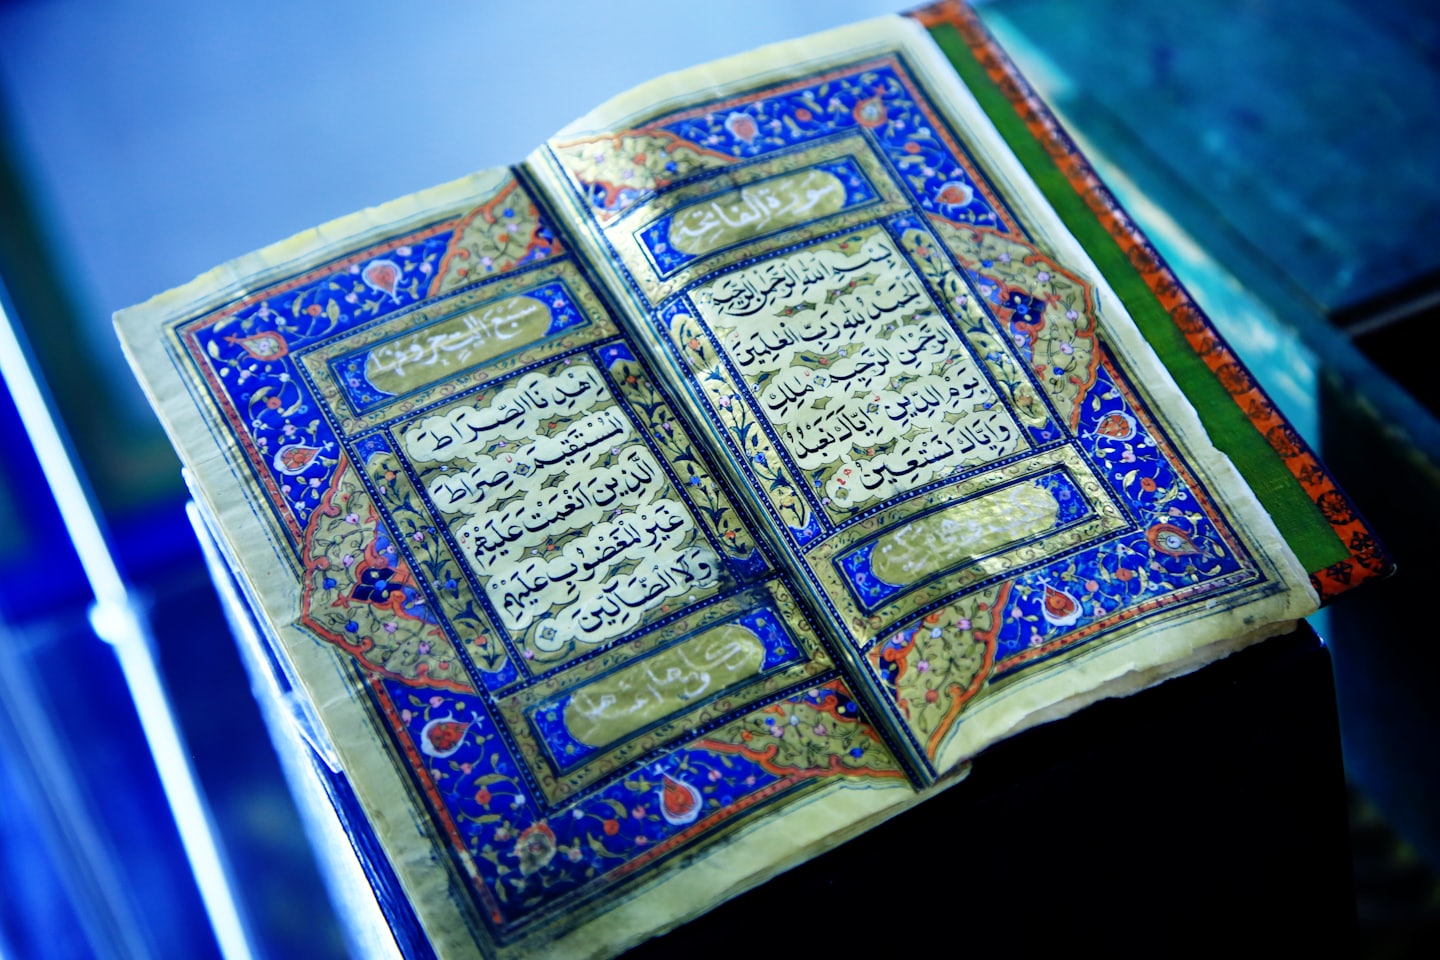 سورة الفاتحة
بسم الله الرحمن الرحيم
الحمد لله رب العلمين
الرحمن الرحيم ملك
يوم الدين اياك نعبد
واياك نستعين
سبع آيات حروفها
اهدنا الصراط
المستقيم صراط
الذين انعمت عليهم
غير المغضوب عليهم
ولا الضالين